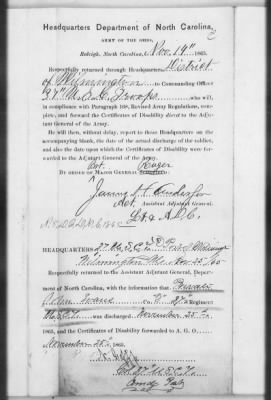 Headquarters Department of North Carolina,
ARMY OF THE OHIO,
Raleigh, North Carolina, Nov. 14" 1865.
Respectfully returned through Headquarters District
of Wilmington to Commanding Officer
37" U.S.C. Troops who will,
in compliance with Paragraph 168, Revised Army Regulations, complete,
and forward the Certificates of Disability direct to the Adjutant
General of the Army.
He will then, without delay, report to these Headquarters on the
accompanying blank, the date of the actual discharge of the soldier,
and also the date upon which the Certificates of Disability were forwarded
to the Adjutant General of the Army.
Bvt. Ruger
BY ORDER OF MAJOR GENERAL
James H. Anderson
Act. Assistant Adjutant General.
Lt & A.D.C.
HEADQUARTERS 37 U.S.C.T.
Wilmington Nov 25 /65
Respectfully returned to the Assistant Adjutant General, Department
of North Carolina, with the information that Private
Evans Co. 37" Regiment
U.S.C.T. was discharged November 25th
1865, and the Certificates of Disability forwarded to A. G. O.
November 25th 1865.
Col 37" U.S.C.T.
Comdg